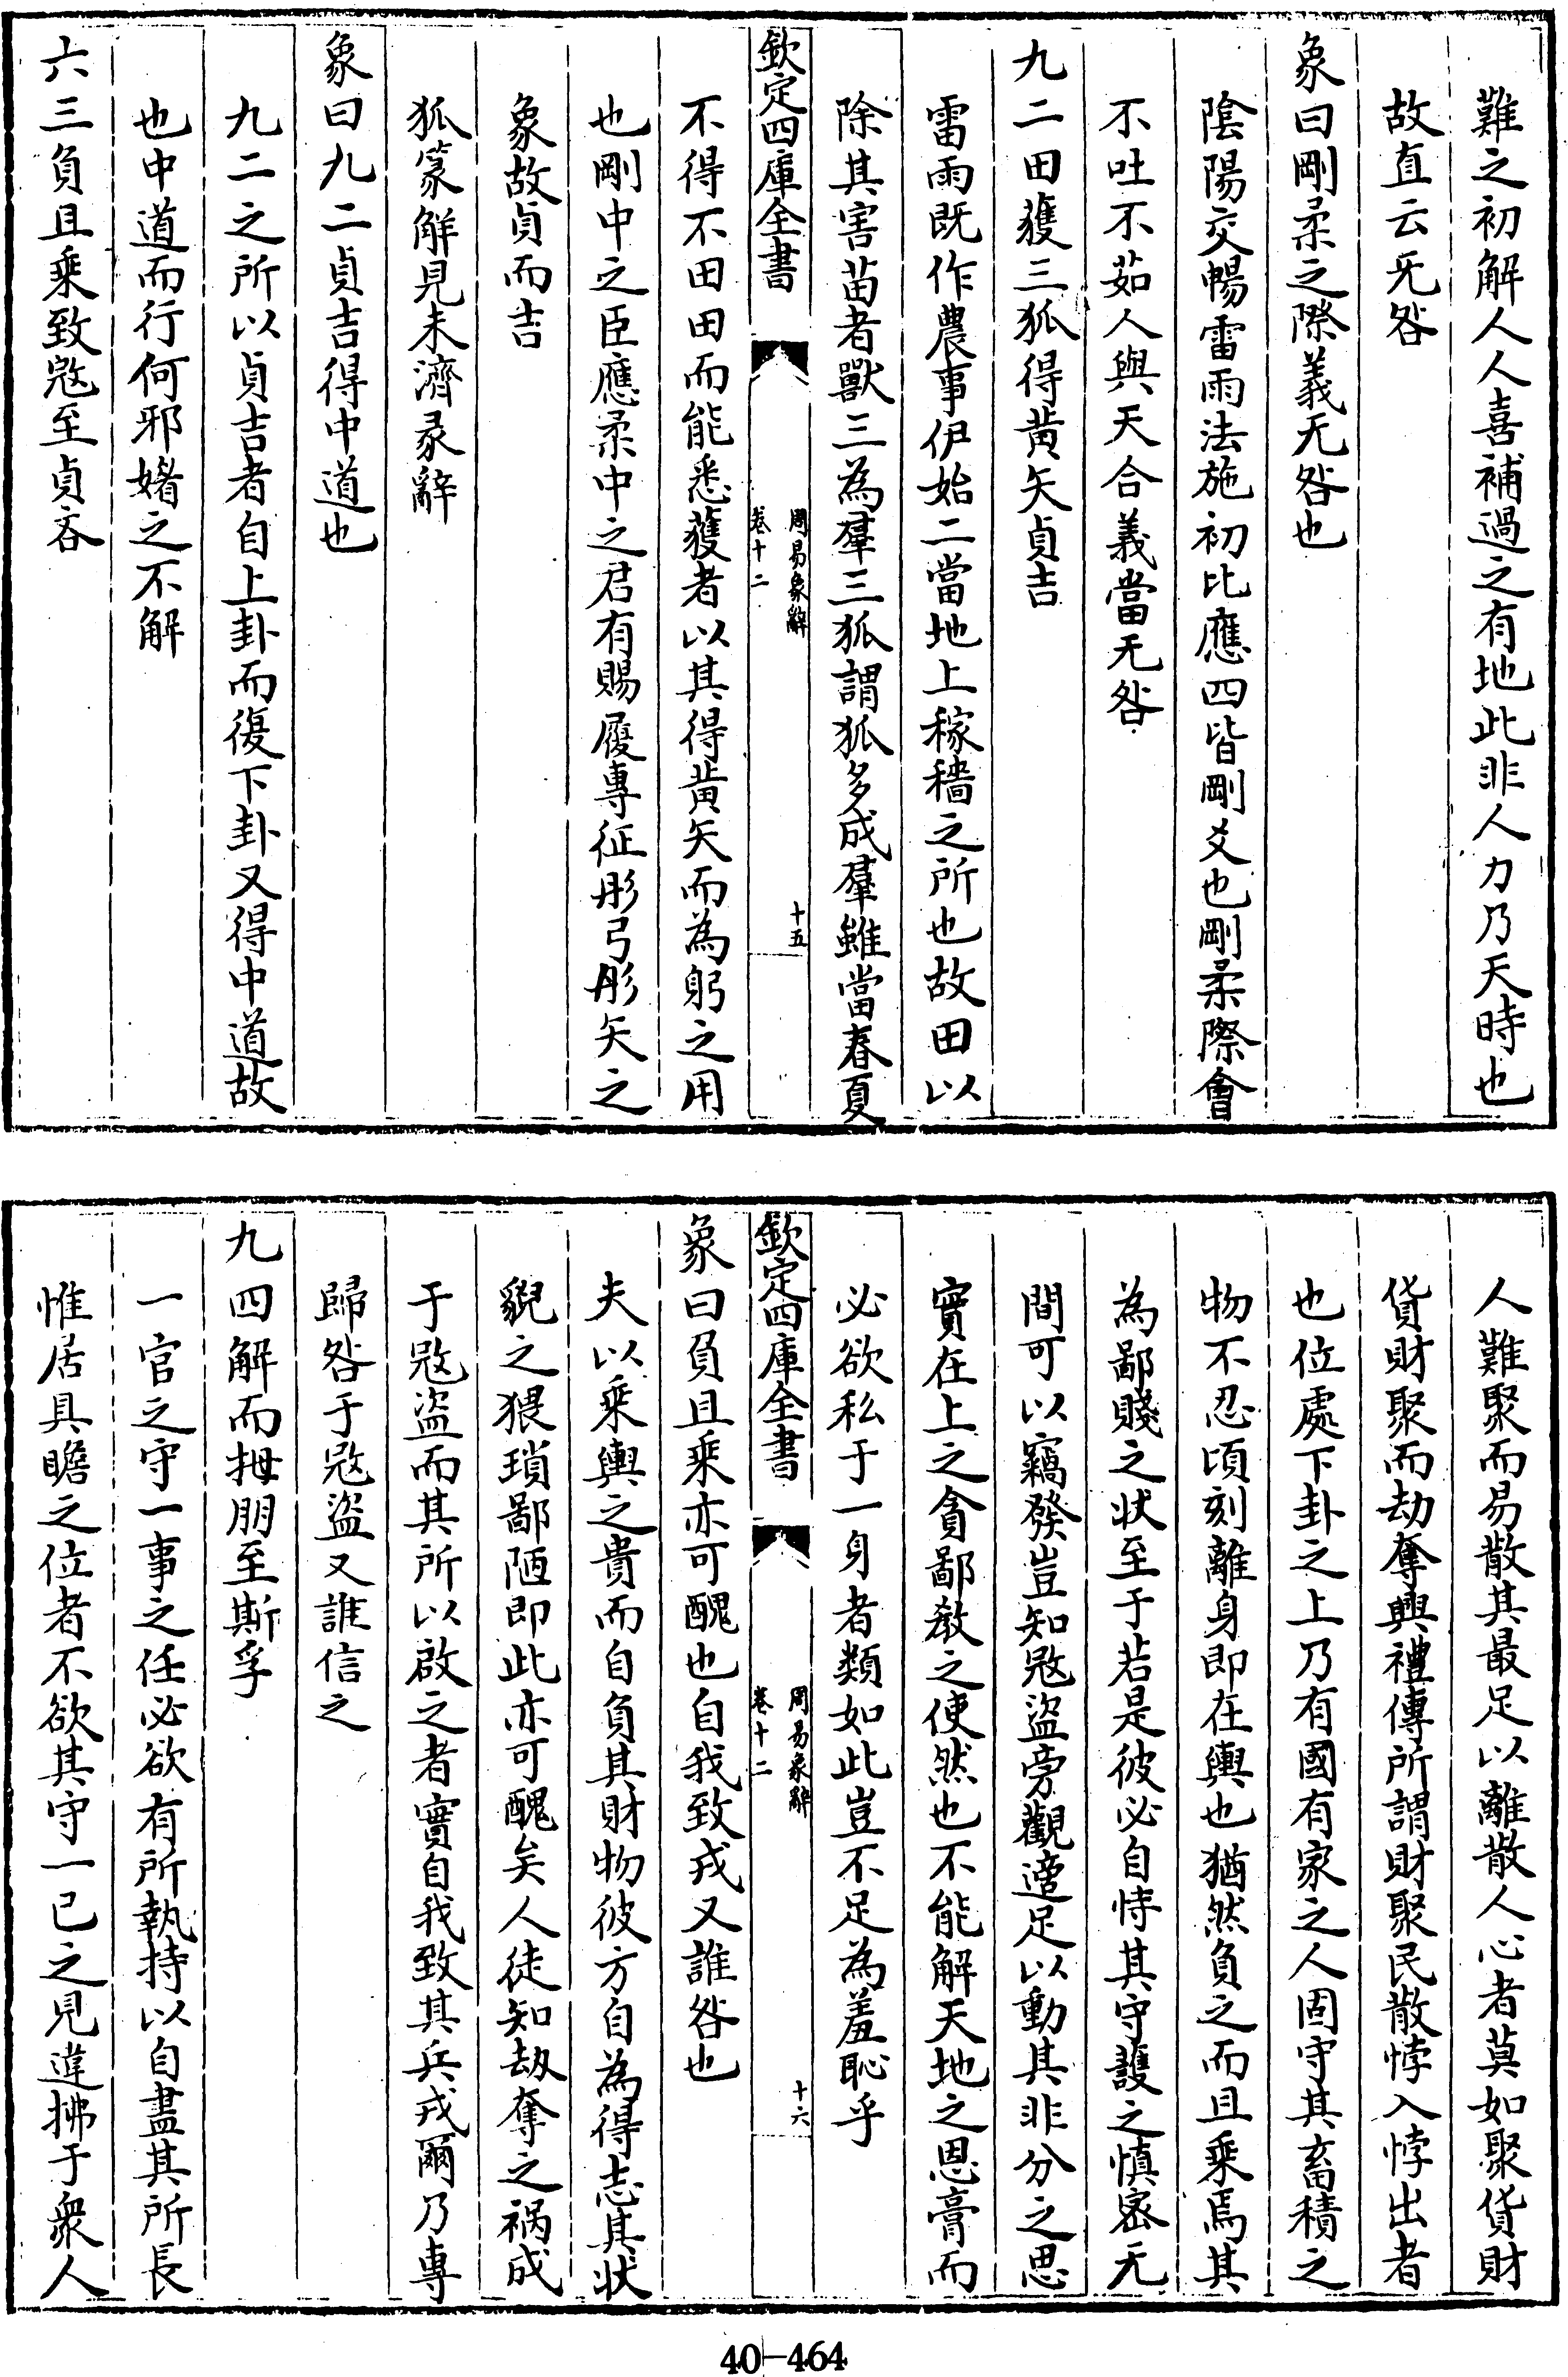 難之初解人人喜補過之有地此非人力乃天時也
故直云无咎
象曰剛柔之際義无咎也
陰陽交暢雷雨法施初比應四皆剛爻也剛柔際會
不吐不茹人與天合義當无咎
九二田獲三狐得黃矢貞吉
雷雨既作農事伊始二當地上稼穡之所也故田以
除其害苗者獸三為羣三狐謂狐多成羣雖當春夏
欽定四庫全書
周易象辭
卷十二
十五
不得不田田而能悉獲者以其得黃矢而為躬之用
也剛中之臣應柔中之君有賜履專征彤弓彤矢之
象故貞而吉
狐篆解見未濟彖辭
象曰九二貞吉得中道也
九二之所以貞吉者自上卦而復下卦又得中道故
也中道而行何邪媎之不解
六三負且乘致寇至貞吝
人難聚而易散其最足以離散人心者莫如聚貨財
貨財聚而劫奪興禮傳所謂財聚民散悖入悖出者
也位處下卦之上乃有國有家之人固守其畜積之
物不忍頃刻離身即在輿也猶然負之而且乘焉其
為鄙賤之狀至于若是彼必自恃其守護之慎宻无
間可以竊發豈知寇盜旁觀適足以動其非分之思
實在上之貪鄙敎之使然也不能解天地之恩膏而
必欲私于一身者類如此豈不足為羞恥乎
欽定四庫全書
周易象辭
卷十二
十六
象曰負且乘亦可醜也自我致戎又誰咎也
夫以乘輿之貴而自負其財物彼方自為得志其狀
貌之猥瑣鄙陋即此亦可醜矣人徒知劫奪之禍成
于寇盜而其所以啟之者實自我致其兵戎爾乃專
歸咎于寇盜又誰信之
九四解而拇朋至斯孚
一官之守一事之任必欲有所執持以自盡其所長
惟居具瞻之位者不欲其守一已之見違拂于衆人
40-464